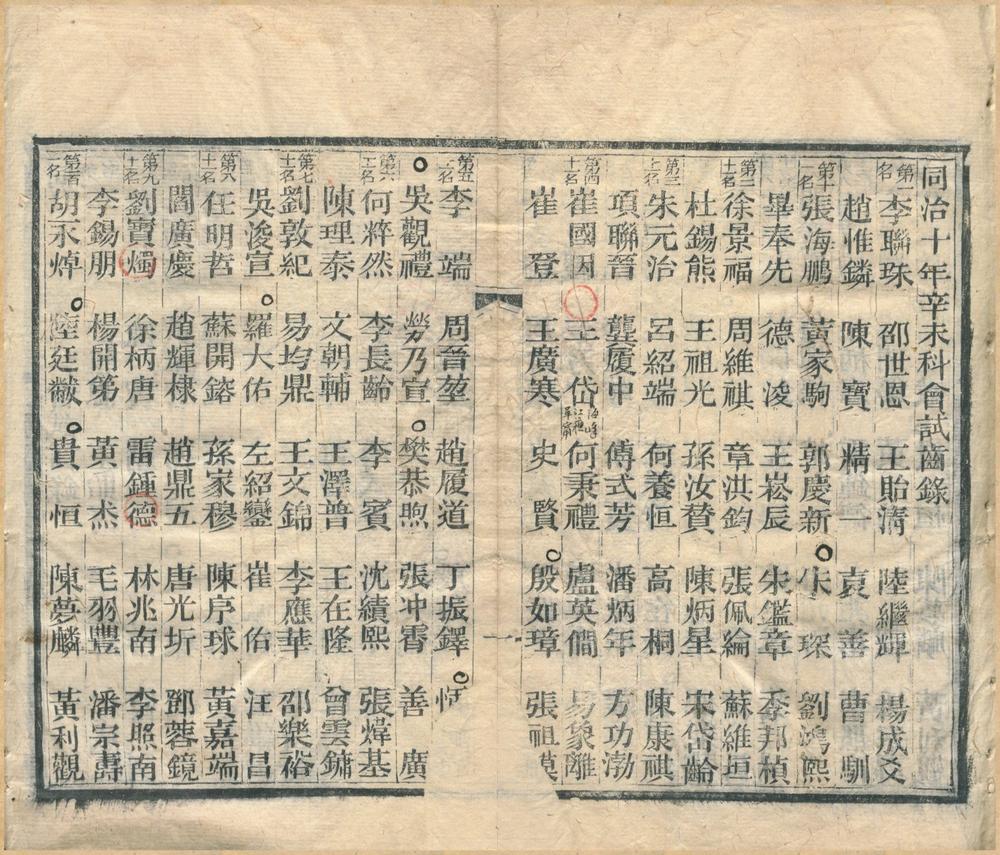 同治十年辛未科會試齒錄
第一名 李聯珠 邵世恩 王貽清 陸繼輝 楊成爻
趙惟鏻 陳寶 精一 袁善 曹馴
第十一名 張海鵬 黃家駒 郭慶新 朱琛 劉鴻熙
畢奉先 德浚 王崧辰 朱鑑章 李邦楨
第二十一名 徐景福 周維祺 章洪鈞 張佩綸 蘇維垣
杜錫熊 王祖光 孫汝贊 陳炳星 宋岱齡
第三十一名 朱元治 呂紹端 何養恒 高桐 陳康祺
項聯晉 龔履中 傅式芳 潘炳年 方功渤
第四十一名 崔國因 王岱 何秉禮 盧英僩 易象離
崔登 王廣寒 史賢 殷如璋 張祖謨
一
第五十一名 李端 周晉堃 趙履道 丁振鐸 恬
吳觀禮 勞乃宣 樊恭煦 張冲霄 善廣
第六十一名 何粹然 李長齡 李賓 沈續熙 張煒基
陳理泰 文朝輔 王澤普 王在隆 曾雲鏞
第七十一名 劉敦紀 易均鼎 王文錦 李應華 邵樂裕
吳浚宣 羅大佑 左紹鑾 崔佑 汪昌
第八十一名 任明哲 蘇開鎔 孫家穆 陳序球 黃嘉端
閻廣慶 趙輝棣 趙鼎五 唐光圻 鄧蓉鏡
第九十一名 劉寶燭 徐柄唐 雷鍾德 林兆南 李照南
李錫朋 楊開第 黃杰 毛羽豐 潘宗壽
第一百一名 胡永焯 陸廷黻 貴恒 陳夢麟 黃利觀